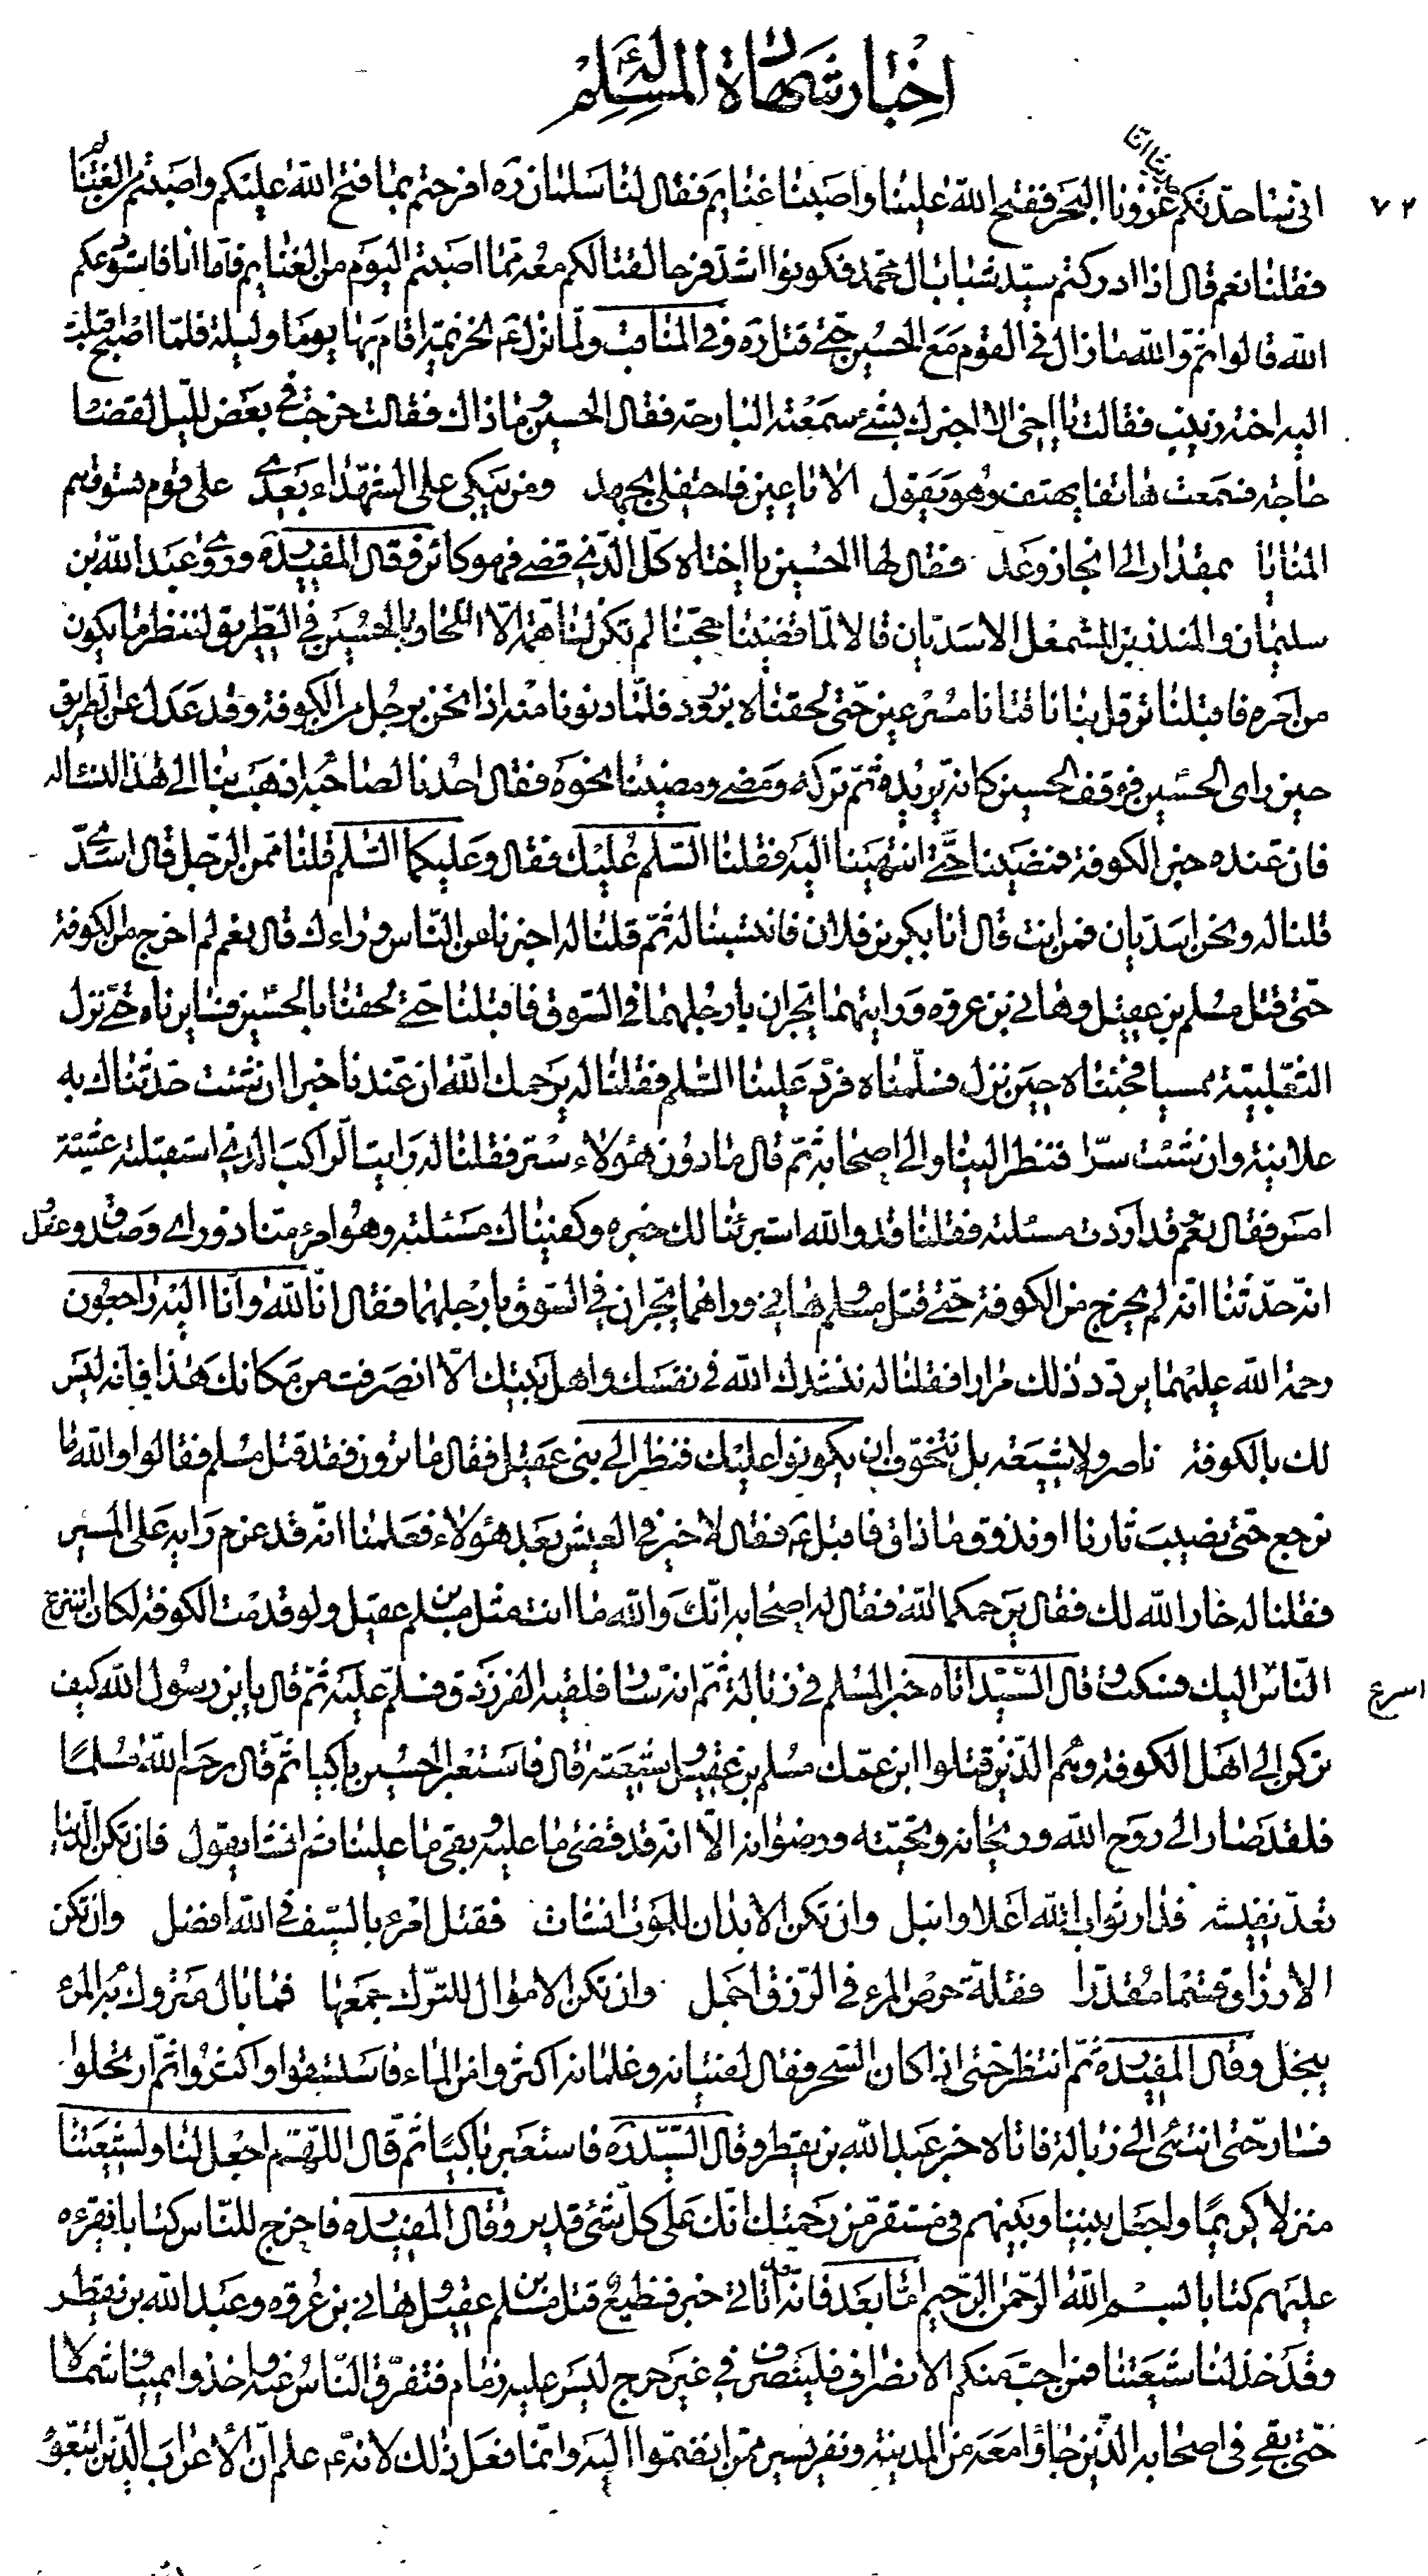 اخبار شهادة المسلم له
٧٢
انى نسا حدثكم غزونا البحر ففتح الله علينا واصبنا غنايم فقال لنا سلمان ره افرحتم بما فتح الله عليكم واصبتم من الغنايم
فقلنا نعم قال اذا ادركتم سيد شباب ال محمد فكونوا اشد فرحا لقتالكم معه مما اصبتم اليوم من الغنايم فاما انا فاستودعكم
الله قالوا ثم والله ما زال فى القوم مع الحسين حتى قتل ره وفى المناقب ولما نزل ع الخزيمية اقام بها يوما وليلة فلما اصبح اقبلت
اليه اخته زينب فقالت يا اخى الا اخبرك بشئ سمعته البارحة فقال الحسين وما ذاك فقالت خرجت فى بعض الليل لقضاء
حاجة فسمعت هاتفا يهتف وهو يقول الا يا عين فاحتفلى بجهد ومن يبكى على الشهداء بعدى على قوم تسوقهم
المنايا بمقدار الى انجاز وعد فقال لها الحسين يا اختاه كل الذى قضى فهو كائن وقال المفيد ره وروى عبد الله بن
سليمان والمنذر بن المشمعل الاسديان قالا لما قضينا حجنا لم تكن لنا همة الا اللحاق بالحسين فى الطريق لننظر ما يكون
من امره فاقبلنا ترقل بنا ناقتانا مسرعين حتى لحقناه بزرود فلما دنونا منه اذا نحن برجل من الكوفة وقد عدل عن الطريق
حين راى الحسين فوقف الحسين كانه يريده ثم تركه ومضى ومضينا نحوه فقال احدنا لصاحبه اذهب بنا الى هذا لنسئاله
فان عنده خبر الكوفة فمضينا حتى انتهينا اليه فقلنا السلم عليك فقال وعليكما السلم قلنا ممن الرجل قال اسدى
قلنا له ونحن اسديان فمن انت قال انا بكر بن فلان فانتسبنا له ثم قلنا له اخبرنا عن الناس وراءك قال نعم لم اخرج من الكوفة
حتى قتل مسلم بن عقيل وهانى بن عروه ورايتهما يجران بارجلهما فى السوق فاقبلنا حتى لحقنا بالحسين فسايرناه حتى نزل
الثعلبية ممسيا فجئناه حين نزل فسلمناه فرد علينا السلم فقلنا له يرحمك الله ان عندنا خبرا ان شئت حدثناك به
علانية وان شئت سرا فنظر الينا والى اصحابه ثم قال ما دون هؤلاء ستر فقلنا له رايت الراكب الذى استقبلته عشية
امس فقال نعم قد اردت مسئلته فقلنا قد والله استبرئنا لك خبره وكفيناك مسئلته وهو امرء منا ذو راى وصدق وعقل
انه حدثنا انه لم يخرج من الكوفة حتى قتل مسلم هانى وراهما يجران فى السوق بارجلهما فقال انا لله وانا اليه راجعون
رحمة الله عليهما يردد ذلك مرارا فقلنا له ننشدك الله فى نفسك واهل بيتك الا انصرفت من مكانك هذا فانه ليس
لك بالكوفة ناصر ولا شيعة بل نتخوف ان يكونوا عليك فنظر الى بنى عقيل فقال ما ترون فقد قتل مسلم فقالوا والله ما
نرجع حتى نصيب ثارنا او نذوق ما ذاق فاقبل ع فقال لا خير فى العيش بعد هؤلاء فعلمنا انه قد عزم رايه على المسير
فقلنا له خار الله لك فقال يرحمكما الله فقال له اصحابه انك والله ما انت مثل مسلم بن عقيل ولو قدمت الكوفة لكان اسرع
اسرع
الناس اليك فسكت وقال السيد اتاه خبر المسلم فى زبالة ثم انه سار فلقيه الفرزدق فسلم عليه ثم قال يابن رسول الله كيف
تركن الى اهل الكوفة وهم الذين قتلوا ابن عمك مسلم بن عقيل وشيعته قال فاستعبر الحسين باكيا ثم قال رحم الله مسلما
فلقد صار الى روح الله وريحانه وتحيته ورضوانه الا انه قد قضى ما عليه وبقى ما علينا ثم انشا يقول فان تكن الدنيا
تعد نفيسة فدار ثواب الله اعلا وانبل وان تكن الابدان للموت انشات فقتل امرء بالسيف فى الله افضل وان تكن
الارزاق قسما مقدرا فقلة حرص المرء فى الرزق اجمل وان تكن الاموال للترك جمعها فما بال متروك به المرء
يبخل وقال المفيد ره ثم انتظر حتى اذا كان السحر فقال لفتيانه وغلمانه اكثروا من الماء فاستسقوا واكثروا ثم ارتحلوا
فسار حتى انتهى الى زبالة فاتاه خبر عبد الله بن يقطر وقال السيد ره فاستعبر باكيا ثم قال اللهم اجعل لنا ولشيعتنا
منزلا كريما واجعل بيننا وبينهم فى مستقر من رحمتك انك على كل شئ قدير وقال المفيد ره فاخرج للناس كتابا فقرءه
عليهم كتابا بسم الله الرحمن الرحيم اما بعد فانه قد اتانى خبر فظيع قتل مسلم بن عقيل وهانى بن عروه وعبد الله بن يقطر
وقد خذلنا شيعتنا فمن احب منكم الانصراف فلينصرف فى غير حرج ليس عليه ذمام فتفرق الناس عنه واخذوا يمينا وشمالا
حتى بقى فى اصحابه الذين جاؤا معه من المدينة ونفر يسير ممن انضموا اليه وانما فعل ذلك لانه ع علم ان الاعراب الذين اتبعوه